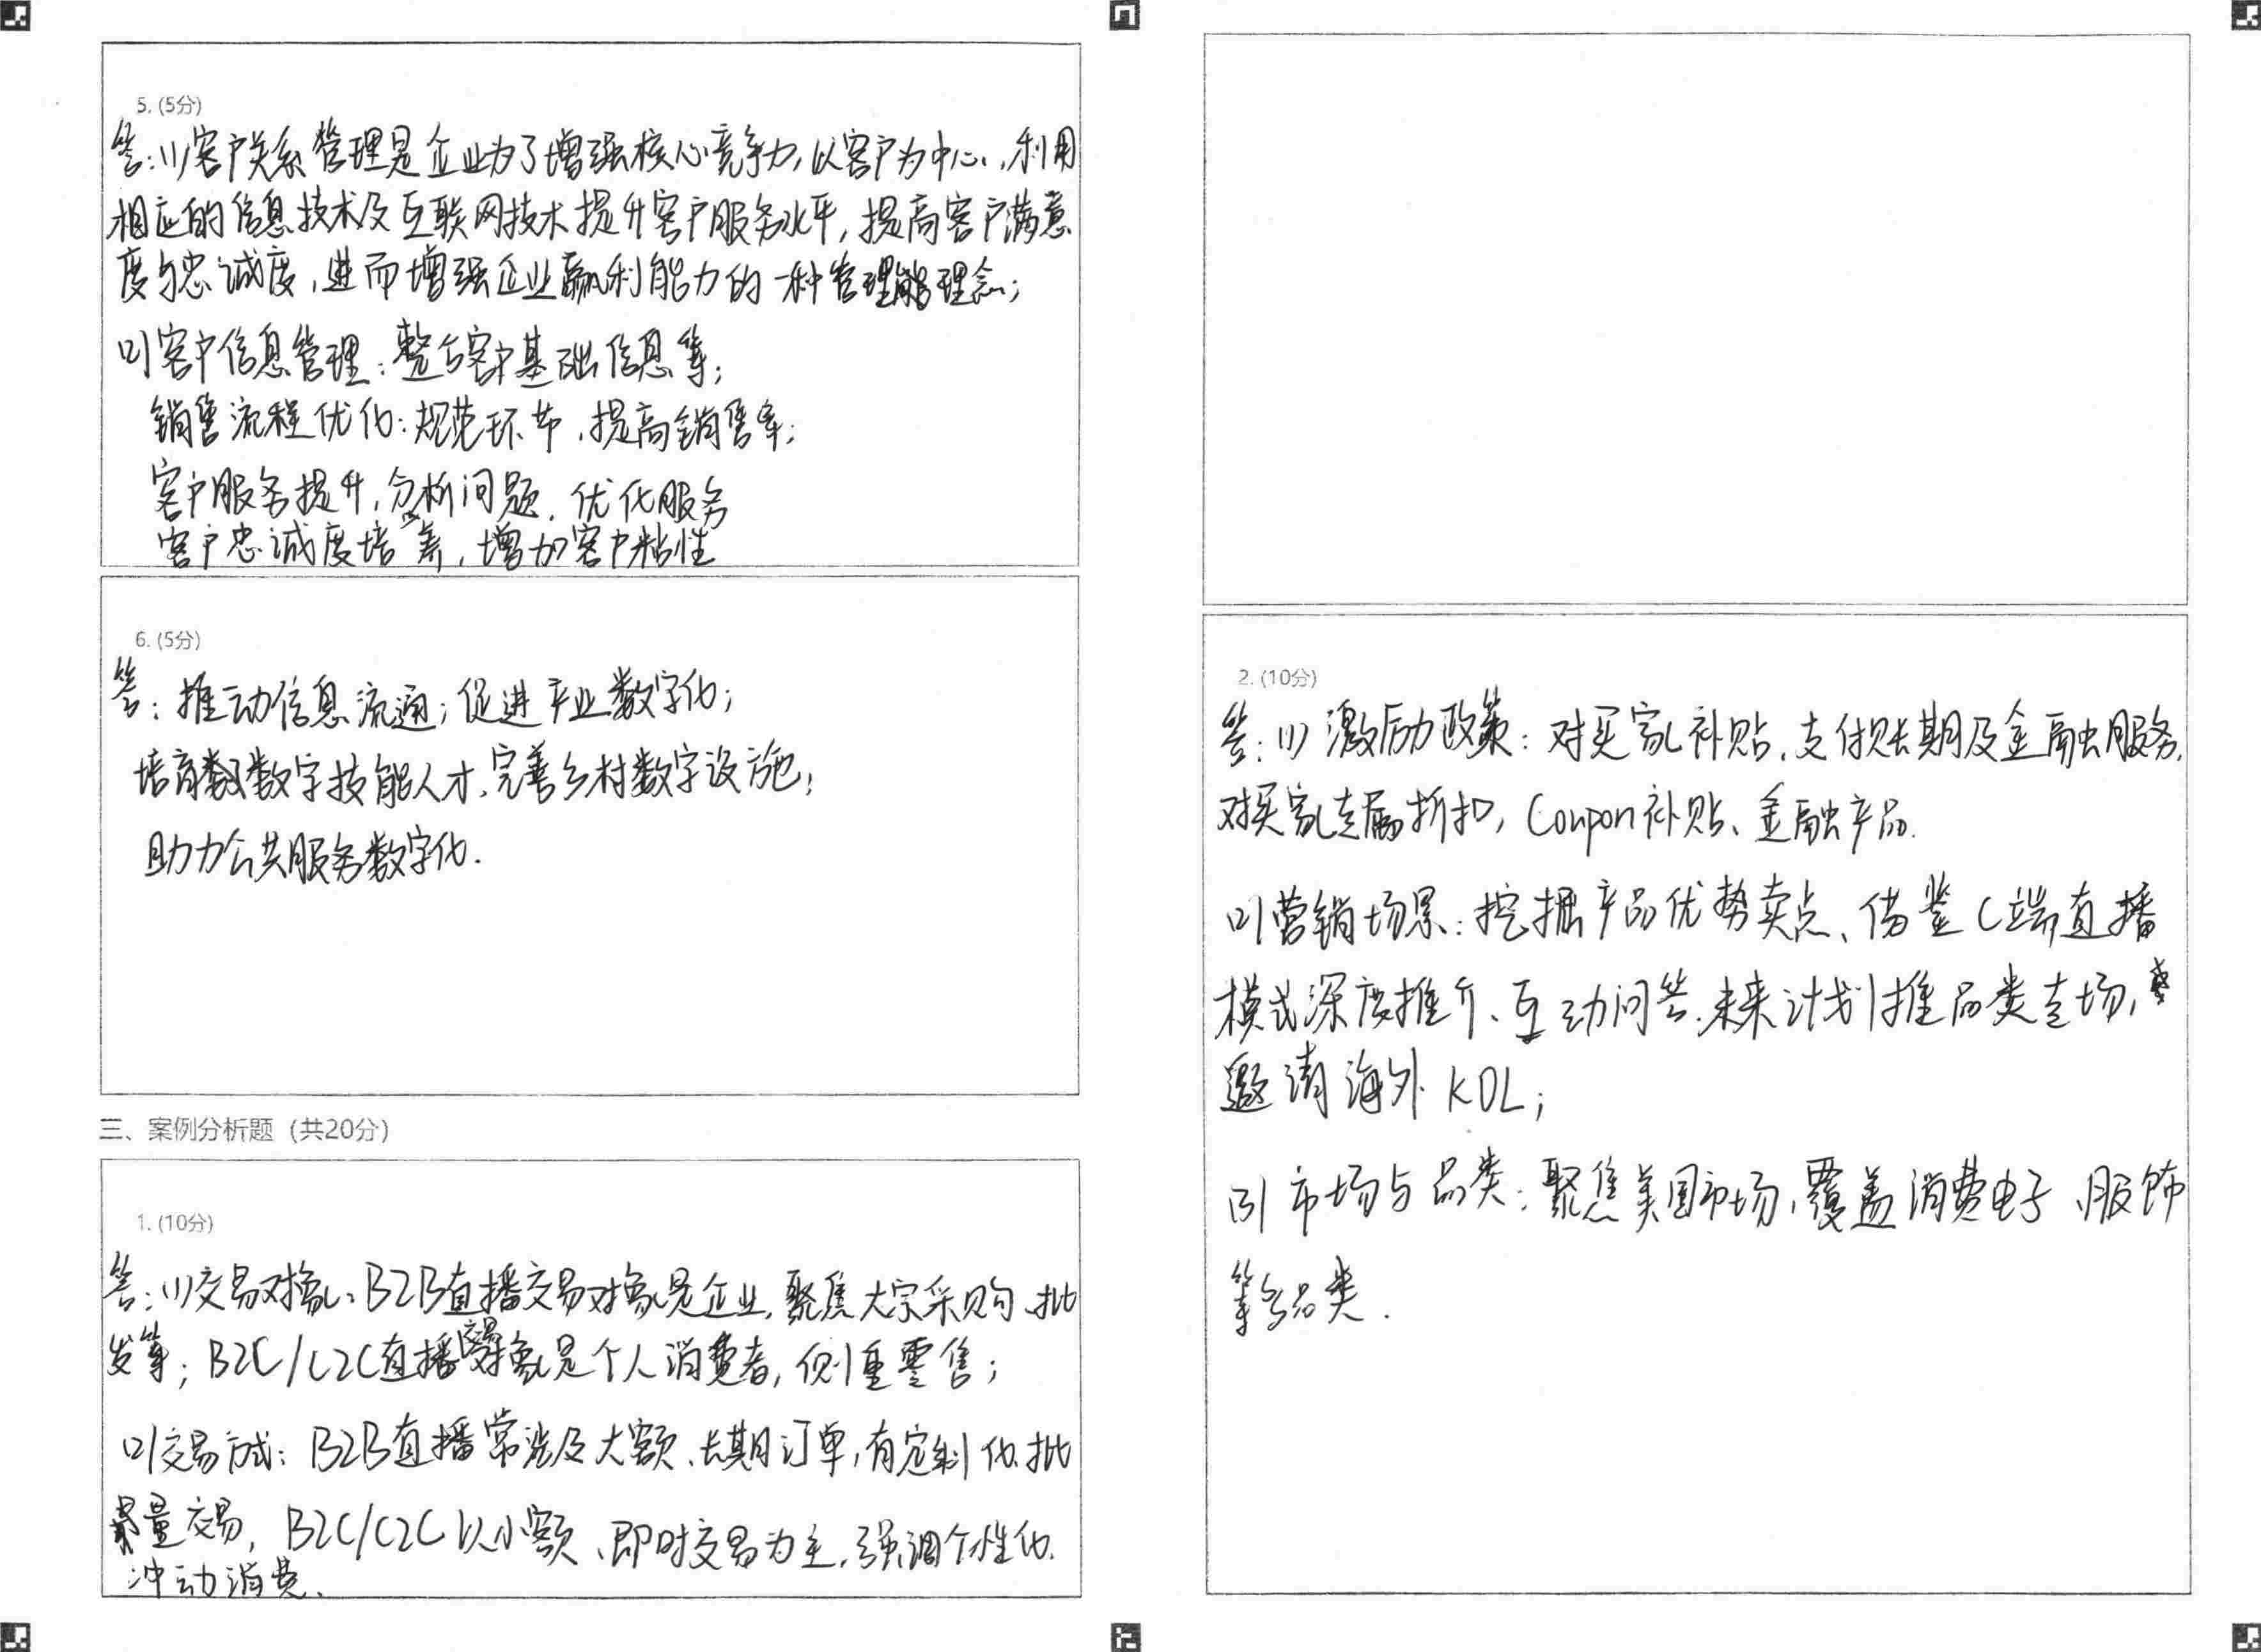 5. (5分)
答:(1)客户关系管理是企业为了增强核心竞争力,以客户为中心,利用
相应的信息技术及互联网技术提升客户服务水平,提高客户满意
度与忠诚度,进而增强企业赢利能力的一种管理理念;
(2)客户信息管理:整合客户基础信息等;
销售流程优化:规范环节,提高销售率;
客户服务提升,分析问题,优化服务
客户忠诚度培养,增加客户粘性
6. (5分)
答:推动信息流通;促进产业数字化;
培育数字技能人才,完善乡村数字设施;
助力公共服务数字化.
三、案例分析题 (共20分)
1. (10分)
答:(1)交易对象:B2B直播交易对象是企业,聚焦大宗采购、批
发等;B2C/C2C直播交易对象是个人消费者,侧重零售;
(2)交易方式:B2B直播常涉及大额、长期订单,有定制化、批
量交易,B2C/C2C以小额、即时交易为主,强调个性化、
冲动消费、
2. (10分)
答:(1)激励政策:对买家补贴、支付账期及金融服务,
对买家专属折扣,Coupon补贴、金融产品.
(2)营销场景:挖掘产品优势卖点、借鉴C端直播
模式深度推介、互动问答.未来计划推品类专场,
邀请海外KOL;
(3)市场与品类:聚焦美国市场,覆盖消费电子、服饰
等多品类.